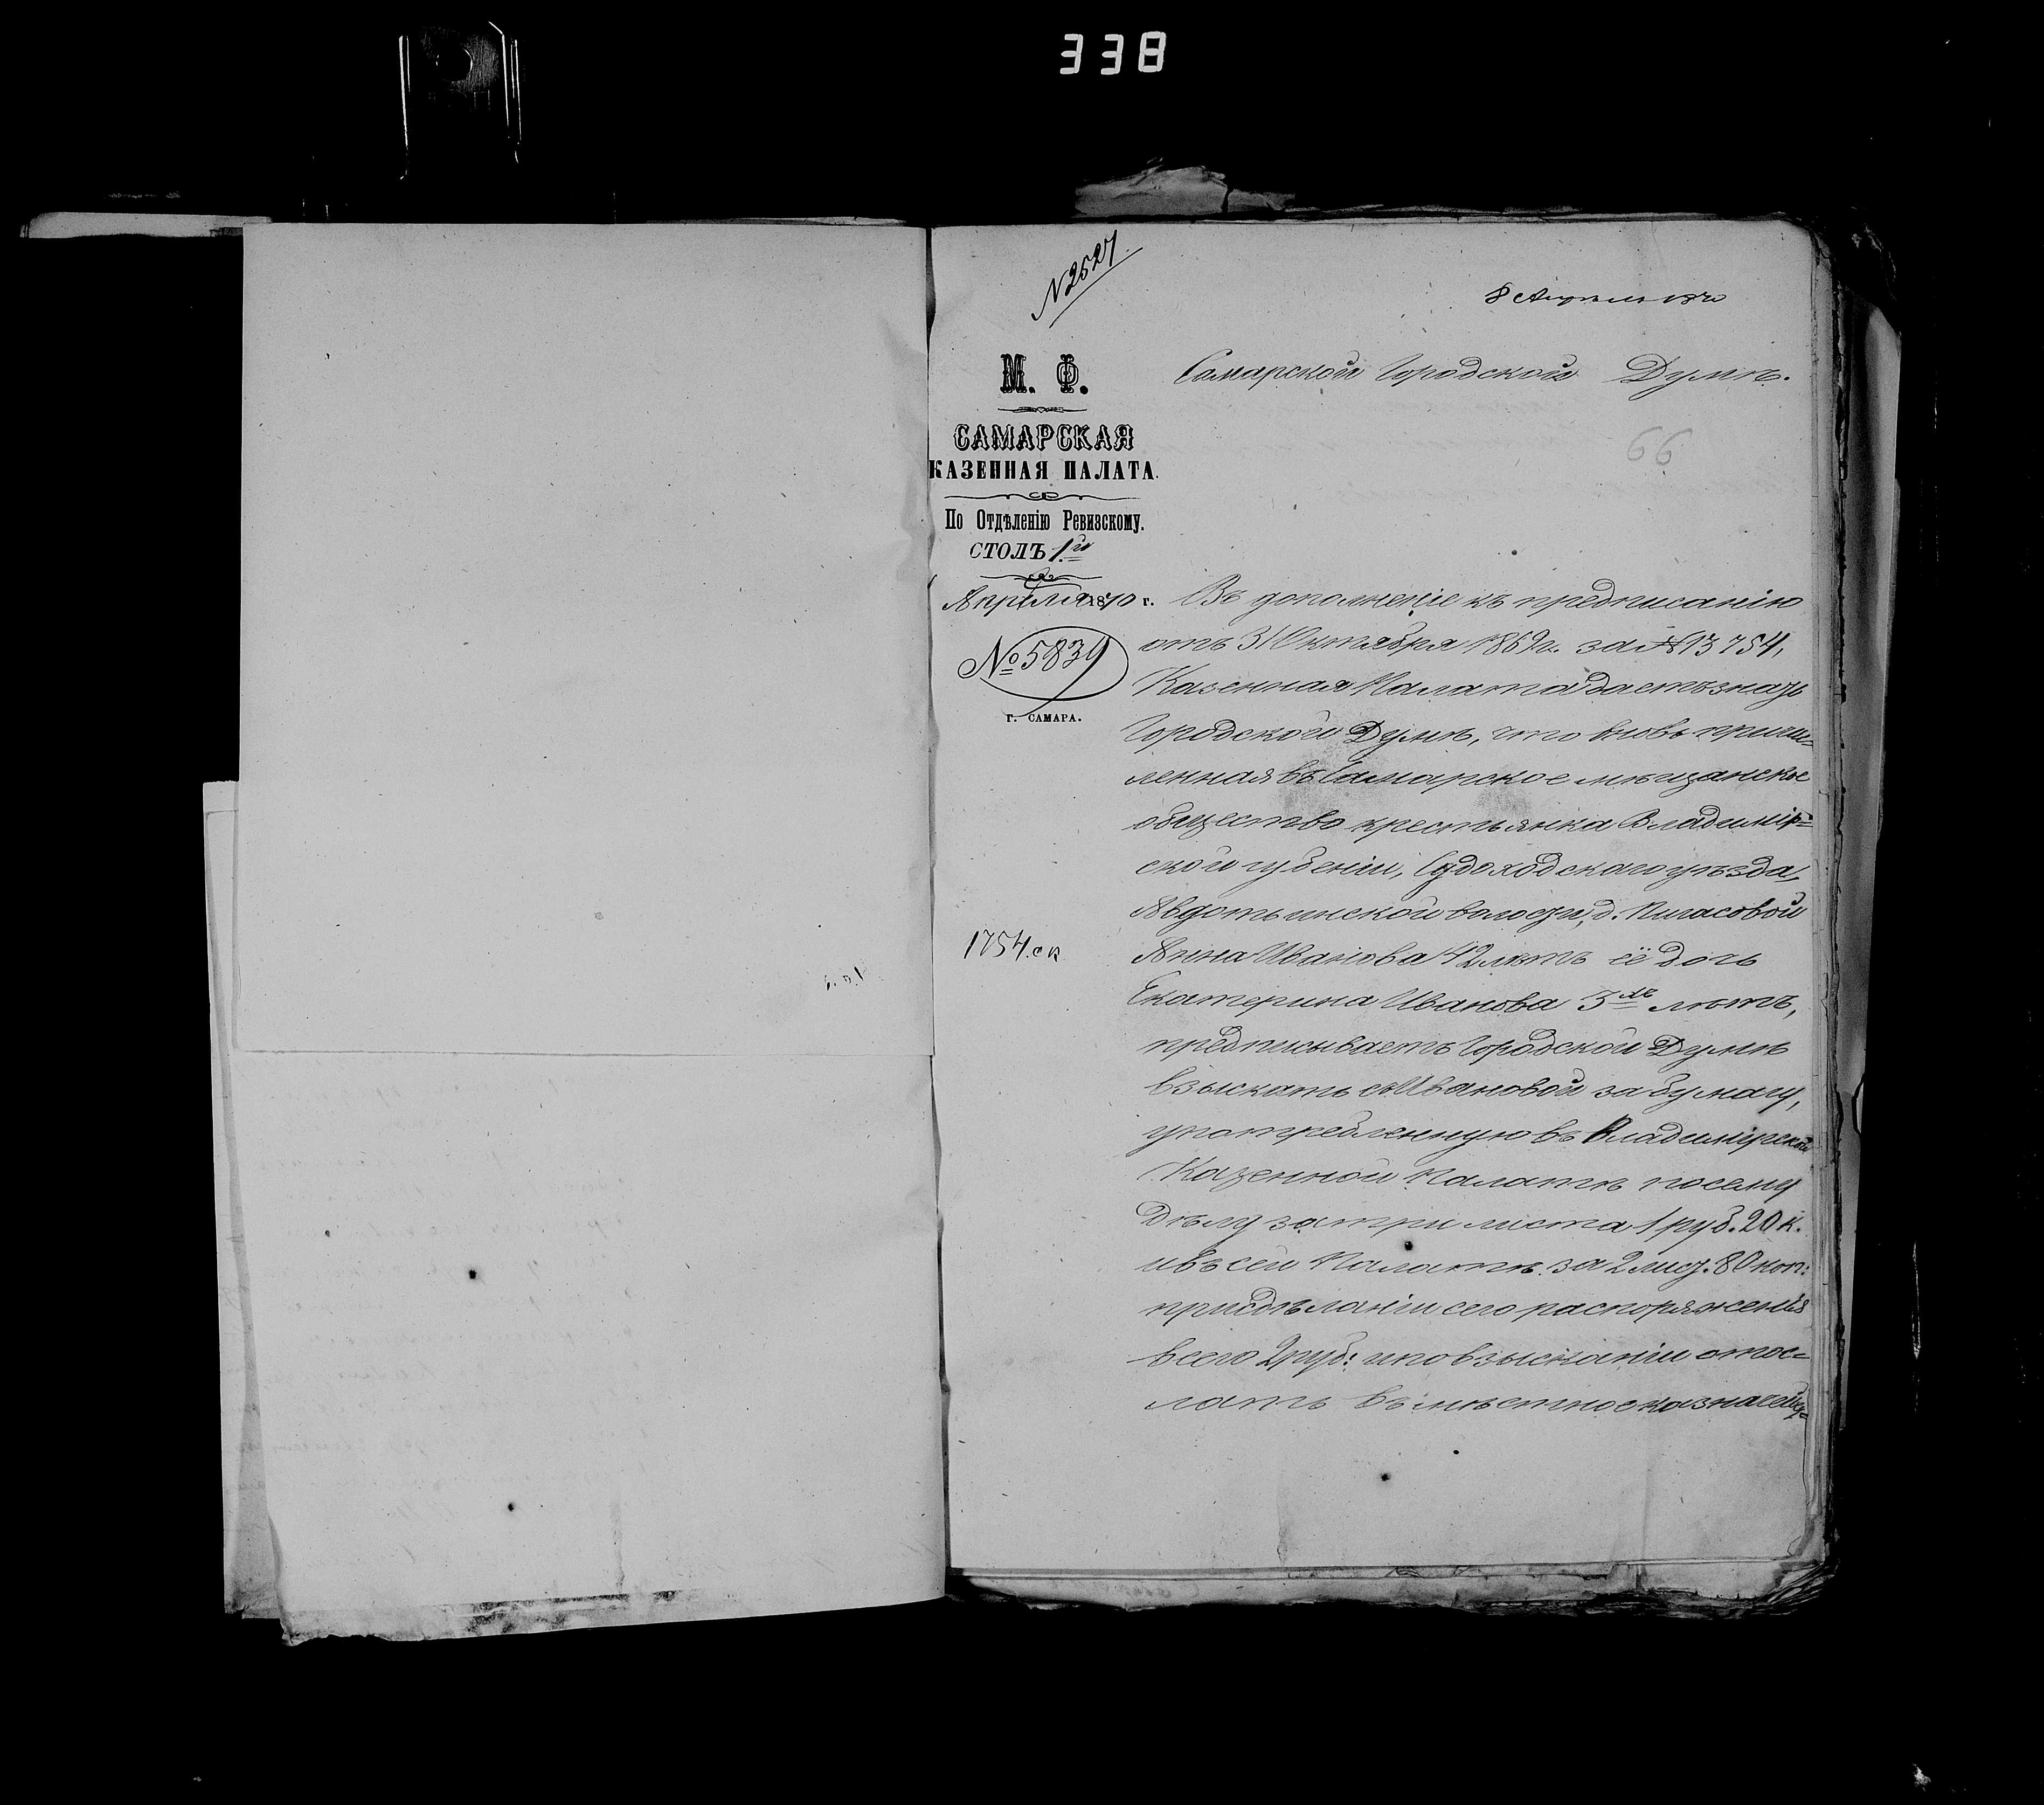 338
№ 2527
8 Апреля 1870
М. Ф.
САМАРСКАЯ
КАЗЕННАЯ ПАЛАТА.
По Отдѣленію Ревизскому.
СТОЛЪ 1й
Апрѣля 1870 г.
№ 5839
Г. САМАРА.
1754. ск
Самарской Городской Думѣ.
66
Въ дополненіе къ предписанію
отъ 31 Октября 1869 г. за № 13754,
Казенная Палата даетъ знать
Городской Думѣ, что вновь причи=
ленная въ Самарское мѣщанское
общество крестьянка Владимір=
ской губеніи, Судоходскаго уѣзда,
Авдотьинской волости, д. Пигасовой
Анна Иванова 42 лѣтъ её дочь
Екатерина Иванова 3хъ лѣтъ,
предписываетъ Городской Думѣ
взыскать съ Ивановой за бумагу,
употребленную въ Владимірской
Казенной Палатѣ по сему
Дѣлу за три листа 1 руб. 20 к.
и въ сей Палатѣ за 2 лист. 80 коп:
при сдѣланіи сего распоряженія
всего 2 руб: и по взысканіи отос=
лать въ мѣстное казначей=